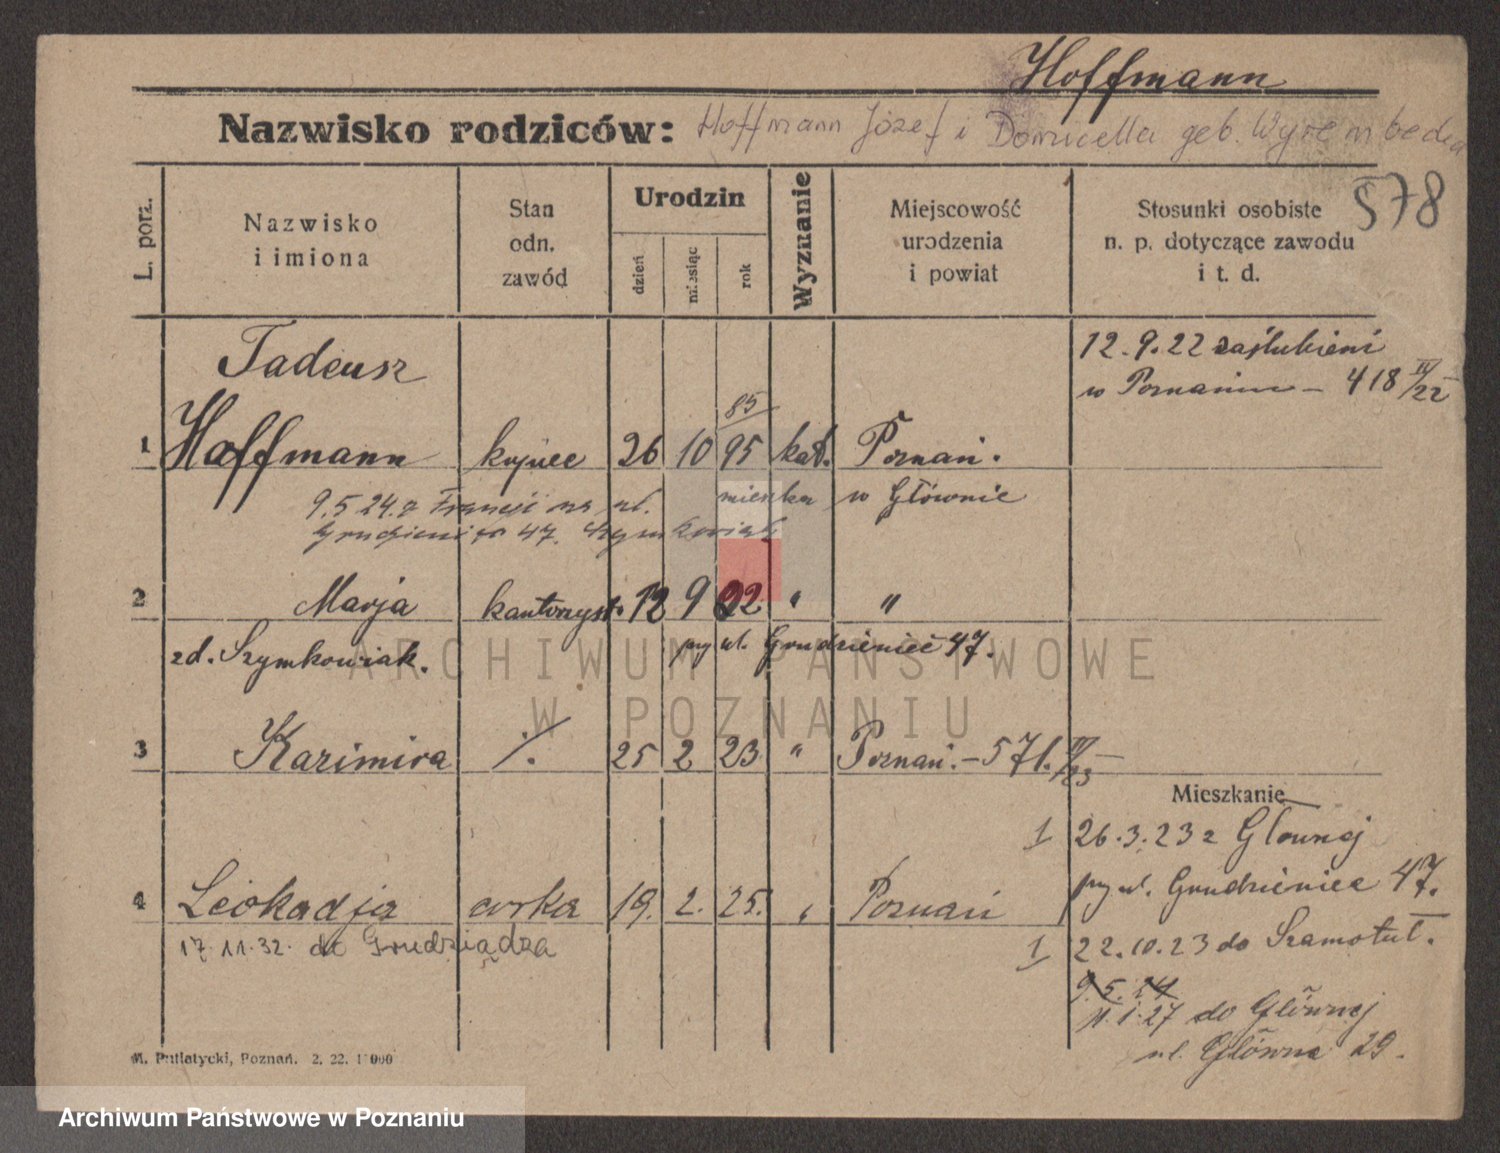 Hoffmann
Nazwisko rodziców: Hoffmann Józef i Domicella geb.
578
L. porz.
Nazwisko i imiona
Stan odn. zawód
Urodzin
dzień
miesiąc
rok
Wyznanie
Miejscowość urodzenia i powiat
Stosunki osobiste n. p. dotyczące zawodu i t. d.
12.9.22 zaślubieni
w Poznaniu - 418 IV/22
Tadeusz
85
1 Hoffmann kupiec 26 10 95 kat. Poznań.
9.5 24. z na ul. mieszka w Głównie
47. Szymkowiak
2 Marja 12 9 02 " "
zd. Szymkowiak. przy ul. Grudzieniec 47.
3 Kazimira ./. 25 2 23 " Poznań. - 571. IV/23
Mieszkanie
1 26.3.23 z Głównej
przy ul. Grudzieniec 47.
4 Leokadja córka 19. 2. 25. " Poznań
17.11.32. do Grudziądza
1 22.10.23 do Szamotuł.
9.5.24
11.1.27 do Głównej
ul. Główna 29.
M. Putiatycki, Poznań. 2. 22. 1000
ARCHIWUM PAŃSTWOWE
W POZNANIU
Archiwum Państwowe w Poznaniu